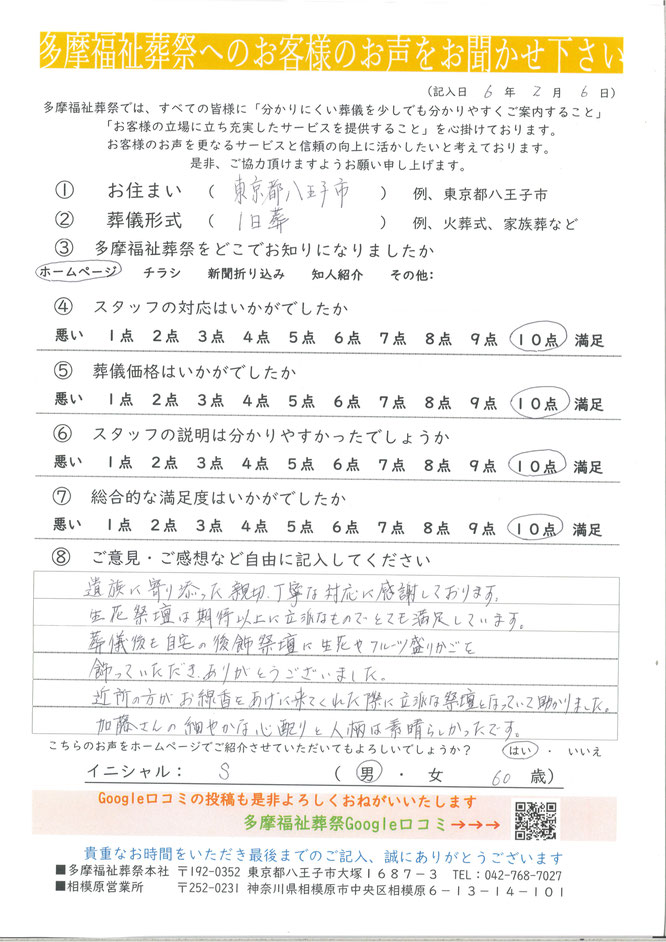 多摩福祉葬祭へのお客様のお声をお聞かせ下さい
(記入日 6 年 2 月 6 日)
多摩福祉葬祭では、すべての皆様に「分かりにくい葬儀を少しでも分かりやすくご案内すること」
「お客様の立場に立ち充実したサービスを提供すること」を心掛けております。
お客様のお声を更なるサービスと信頼の向上に活かしたいと考えております。
是非、ご協力頂けますようお願い申し上げます。
① お住まい ( 東京都八王子市 ) 例、東京都八王子市
② 葬儀形式 ( 1日葬 ) 例、火葬式、家族葬など
③ 多摩福祉葬祭をどこでお知りになりましたか
ホームページ チラシ 新聞折り込み 知人紹介 その他:
④ スタッフの対応はいかがでしたか
悪い 1点 2点 3点 4点 5点 6点 7点 8点 9点 10点 満足
⑤ 葬儀価格はいかがでしたか
悪い 1点 2点 3点 4点 5点 6点 7点 8点 9点 10点 満足
⑥ スタッフの説明は分かりやすかったでしょうか
悪い 1点 2点 3点 4点 5点 6点 7点 8点 9点 10点 満足
⑦ 総合的な満足度はいかがでしたか
悪い 1点 2点 3点 4点 5点 6点 7点 8点 9点 10点 満足
⑧ ご意見・ご感想など自由に記入してください
遺族に寄り添った親切、丁寧な対応に感謝しております。
生花祭壇は期待以上に立派なものでとても満足しています。
葬儀後も自宅の後飾祭壇に生花やフルーツ盛りかごを
飾っていただき、ありがとうございました。
近所の方がお線香をあげに来てくれた際に立派な祭壇となっていて助かりました。
加藤さんの細やかな心配りと人柄は素晴らしかったです。
こちらのお声をホームページでご紹介させていただいてもよろしいでしょうか? はい ・ いいえ
イニシャル: S ( 男 ・ 女 60 歳)
Google口コミの投稿も是非よろしくおねがいいたします
多摩福祉葬祭Google口コミ→→→
貴重なお時間をいただき最後までのご記入、誠にありがとうございます
■多摩福祉葬祭本社 〒192-0352 東京都八王子市大塚1687-3 TEL:042-768-7027
■相模原営業所 〒252-0231 神奈川県相模原市中央区相模原6-13-14-101